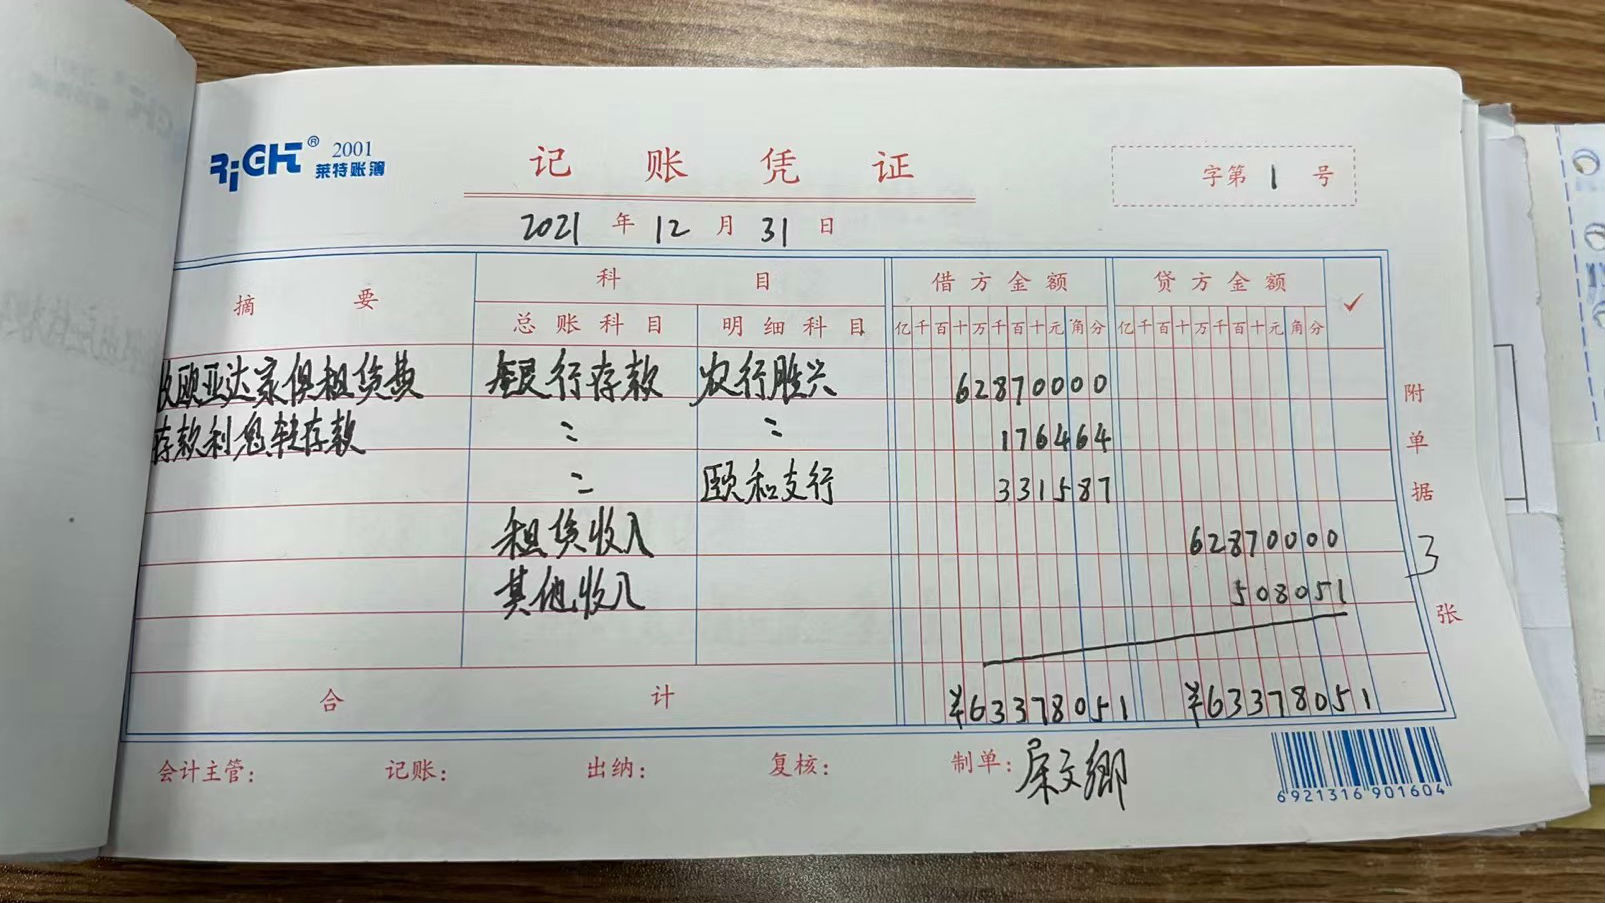 RiGHT® 2001
莱特账簿
记账凭证
字第 1 号
2021 年 12 月 31 日
摘要 科目 借方金额 贷方金额 ✓
总账科目 明细科目 亿千百十万千百十元角分 亿千百十万千百十元角分
收欧亚达家俱租赁费 银行存款 农行胜兴 62870000
存款利息转存款 〃 〃 176464
〃 颐和支行 331587
租赁收入 62870000
其他收入 508051
附单据 3 张
合计 ¥63378051 ¥63378051
会计主管: 记账: 出纳: 复核: 制单: 屈文卿
6921316901604